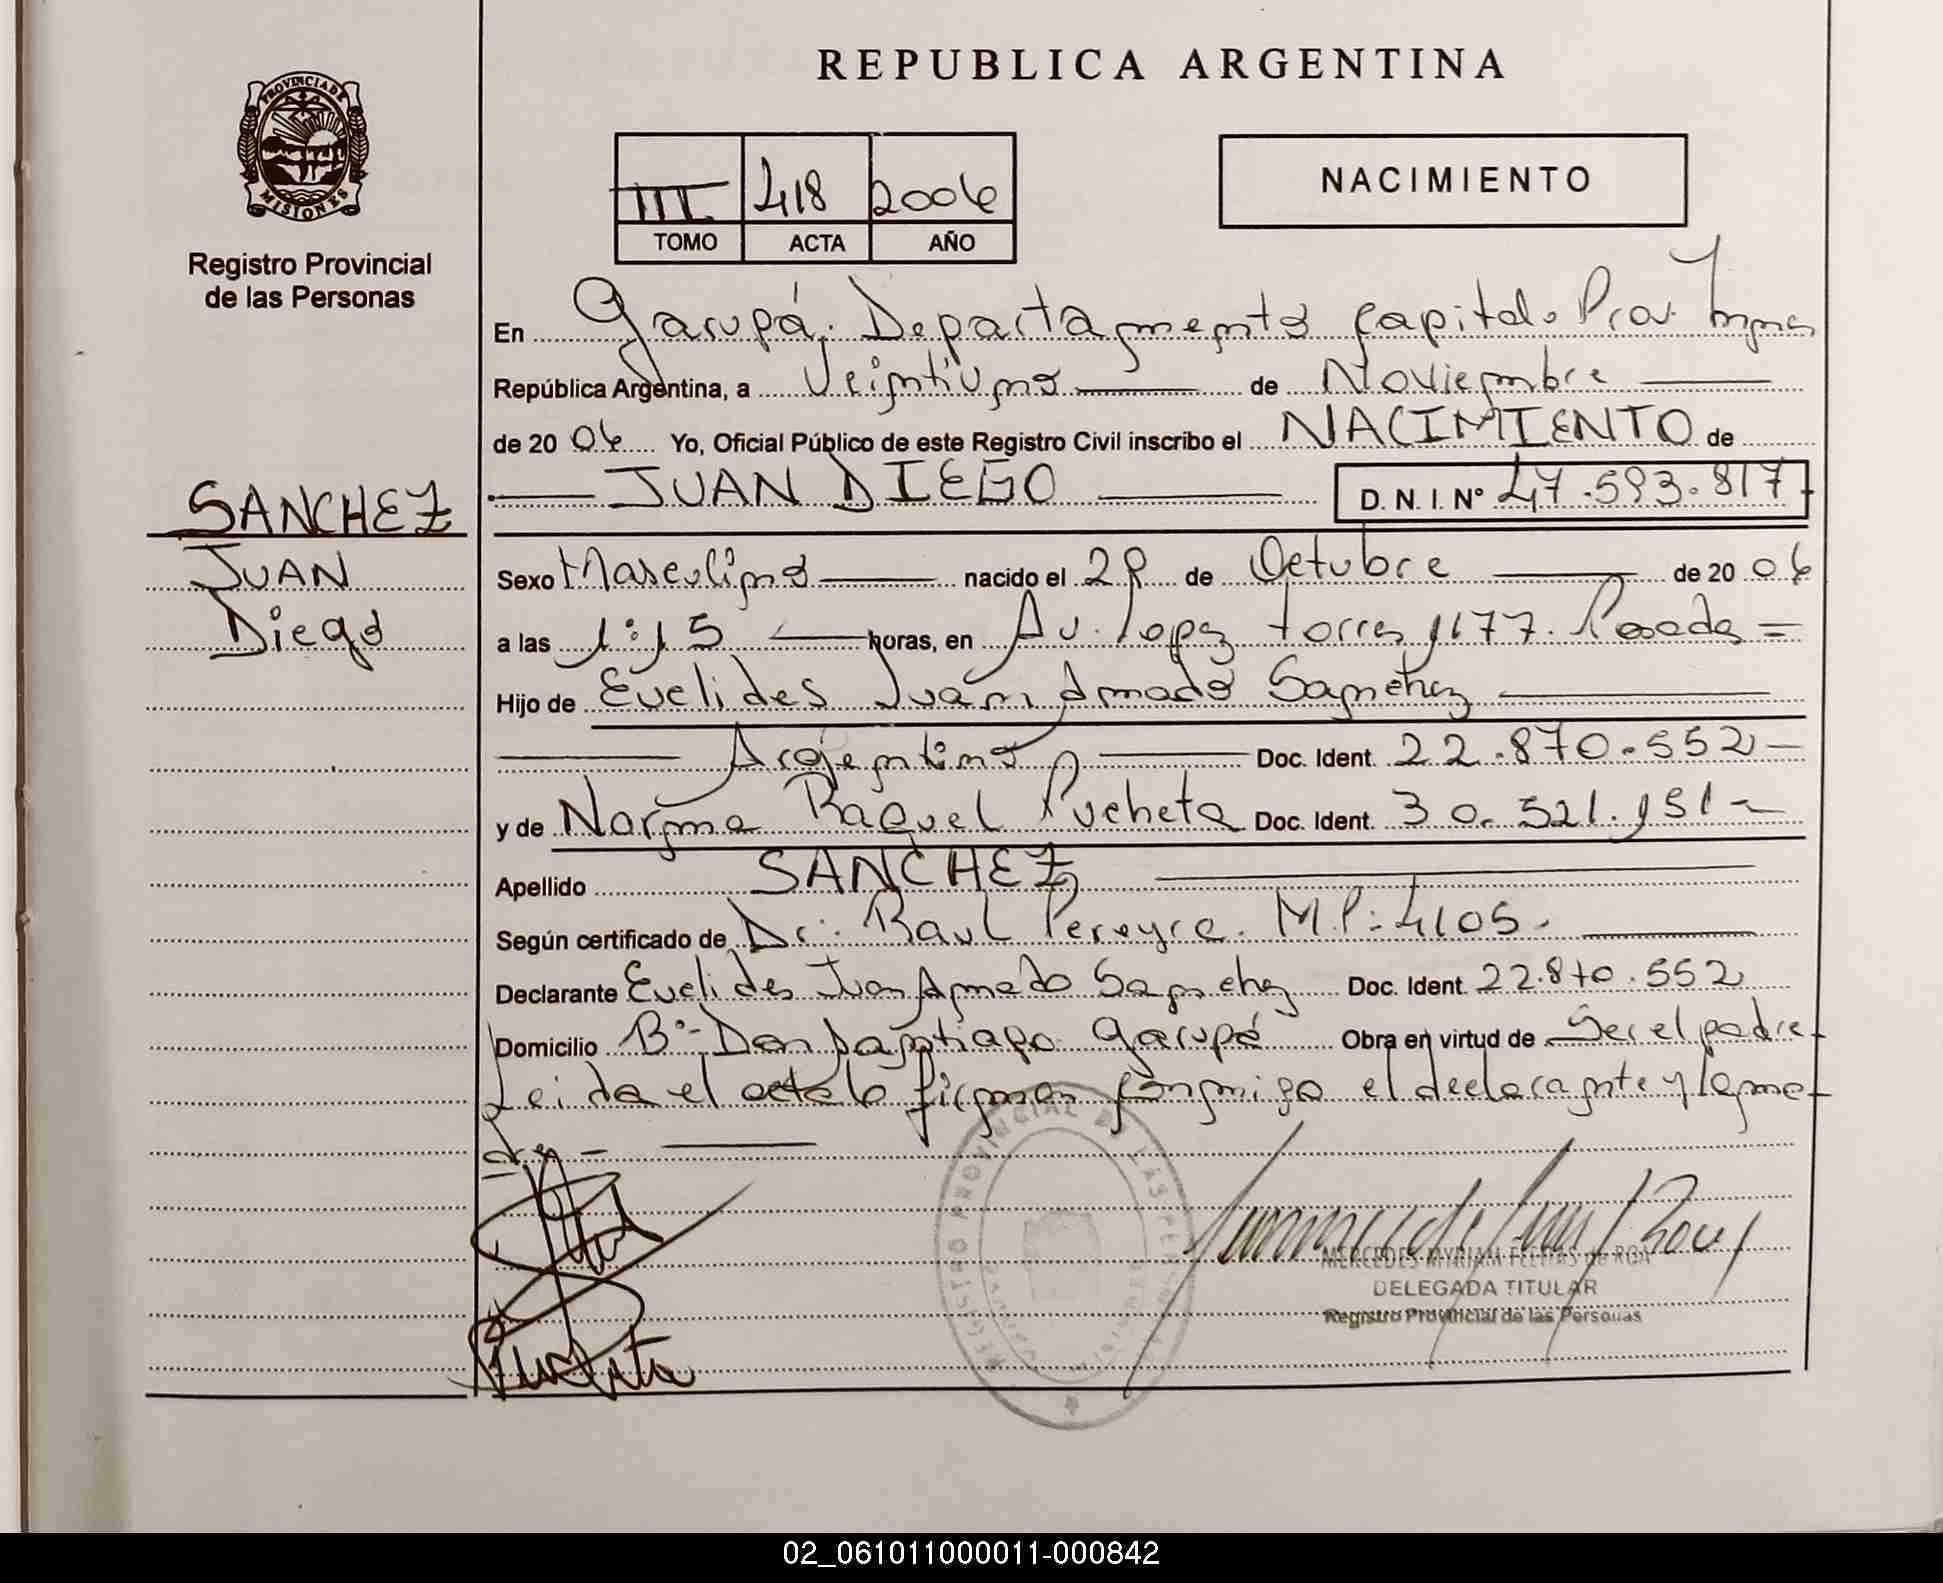 REPUBLICA ARGENTINA
PROVINCIA DE
MISIONES
Registro Provincial
de las Personas
III 418 2006
TOMO ACTA AÑO
NACIMIENTO
En Garupá. Departamento Capital. Prov.
República Argentina, a Veintiuno de Noviembre
de 20 06 Yo, Oficial Público de este Registro Civil inscribo el NACIMIENTO de
JUAN DIEGO D. N. I. Nº 47.593.817
SANCHEZ
JUAN
Diego
Sexo Masculino nacido el 28 de Octubre de 20 06
a las 1:15 horas, en Av. Lopez Torres 1177. Posadas =
Hijo de Euclides Juan Amado Sanchez
Argentino Doc. Ident. 22.870.552
y de Norma Raquel Pucheta Doc. Ident. 30.521.151
Apellido SANCHEZ
Según certificado de Dr: Raul Pereyra. M.P: 4105.
Declarante Euclides Juan Amado Sanchez Doc. Ident. 22.870.552
Domicilio Bº Don Santiago Garupá Obra en virtud de Ser el padre
Leida el acta la firman conmigo el declarante y la ma
dre
MERCEDES MYRIAM FLEITAS de ROA
DELEGADA TITULAR
Registro Provincial de las Personas
REGISTRO PROVINCIAL DE LAS PERSONAS
Pucheta
02_061011000011-000842